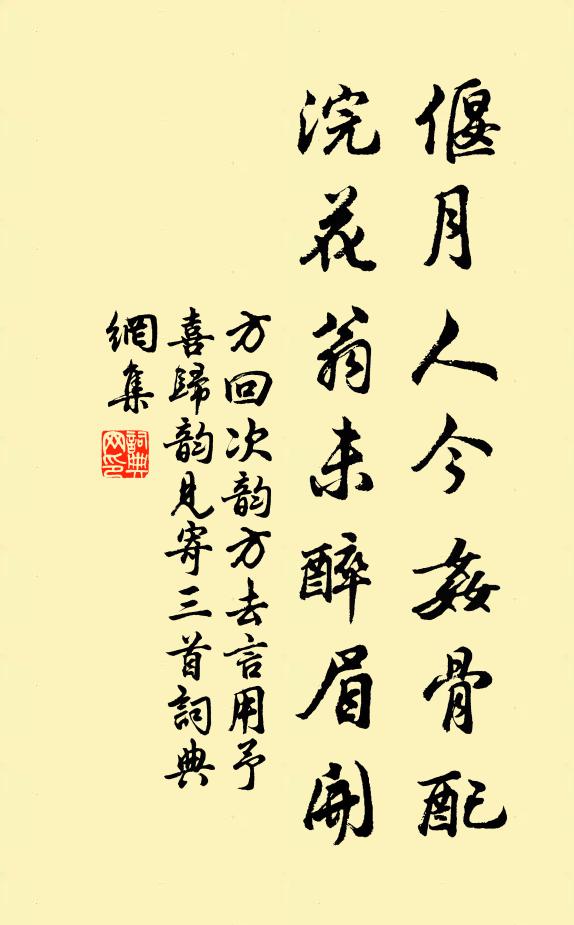 偃月人今姦骨配
浣花翁未醉眉開
方回次韵方去言用予
喜歸韵見寄三首詞典
網集
詞典網印